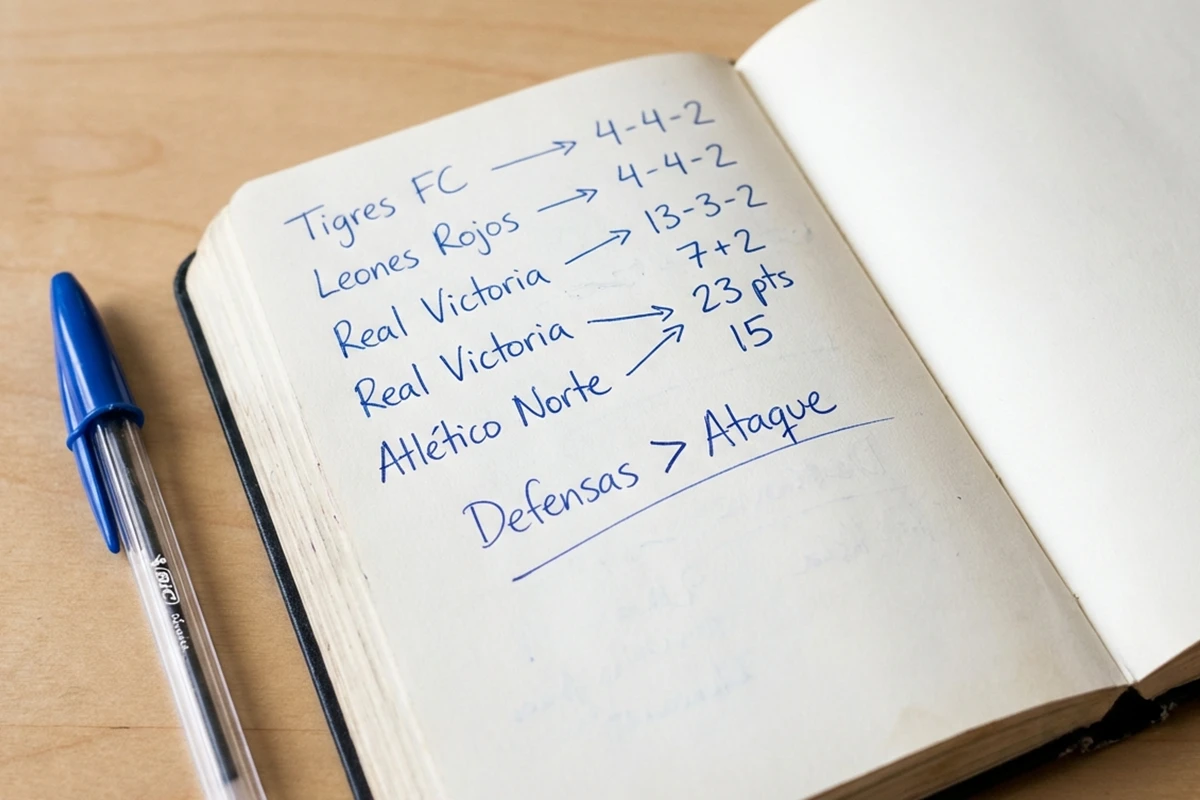 Tigres FC → 4-4-2
Leones Rojos → 4-4-2
Real Victoria → 13-3-2
7+2
Real Victoria → 23 pts
Atlético Norte → 15
Defensas > Ataque
BIC